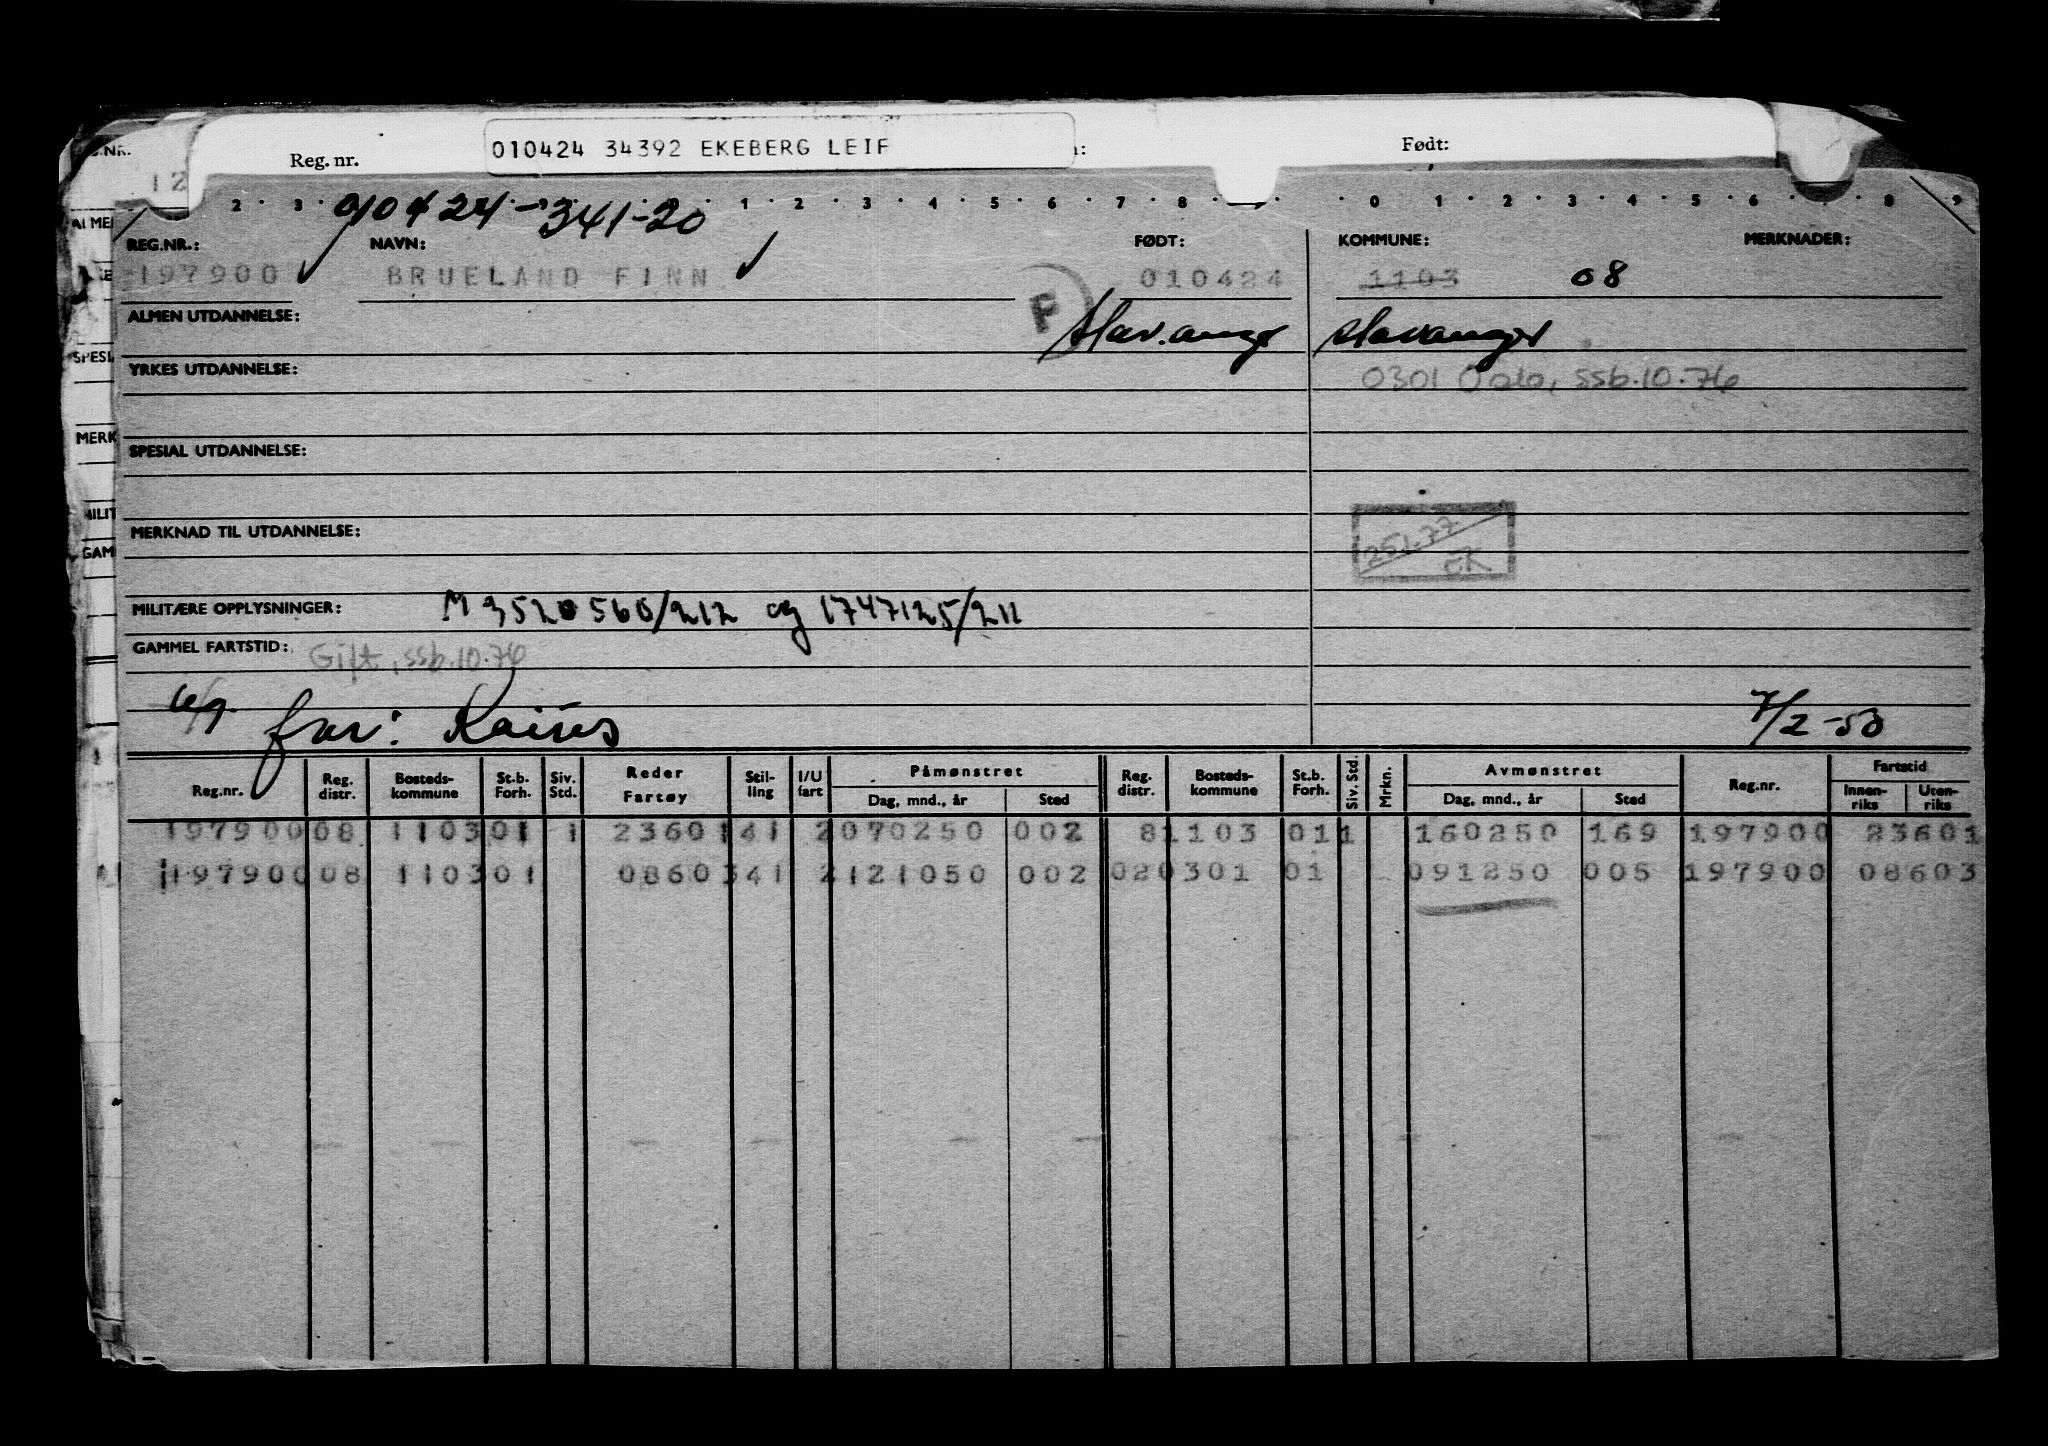 G.NR.
12
Reg. nr.
010424 34392 EKEBERG LEIF
Født:
2 · 3 · 1 · 2 · 3 · 4 · 5 · 6 · 7 · 8 · 0 · 1 · 2 · 3 · 4 · 5 · 6 · 8 · 9
010424-341-20
REG.NR.: NAVN: FØDT: KOMMUNE: MERKNADER:
197900 BRUELAND FINN 010424 1103 08
ALMEN UTDANNELSE: F Stavanger Stavanger
YRKES UTDANNELSE: 0301 Oslo, ssb.10.76
SPESIAL UTDANNELSE:
MERKNAD TIL UTDANNELSE: 251.77
EK
MILITÆRE OPPLYSNINGER: M 3520560/212 og 1747125/211
GAMMEL FARTSTID: Gift, ssb.10.76
far: 7/2-50
Reg.nr. Reg. distr. Bosteds-kommune St.b. Forh. Siv. Std. Reder Fartøy Stil-ling I/U fart Påmønstret Dag, mnd., år Sted Reg. distr. Bosteds-kommune St.b. Forh. Siv. Std. Mrkn. Avmønstret Dag, mnd., år Sted Reg.nr. Fartstid Innen-riks Uten-riks
197900 08 1103 01 1 23601 41 2 070250 002 8 1103 01 1 160250 169 197900 23601
197900 08 1103 01 08603 41 2 121050 002 02 0301 01 091250 005 197900 08603